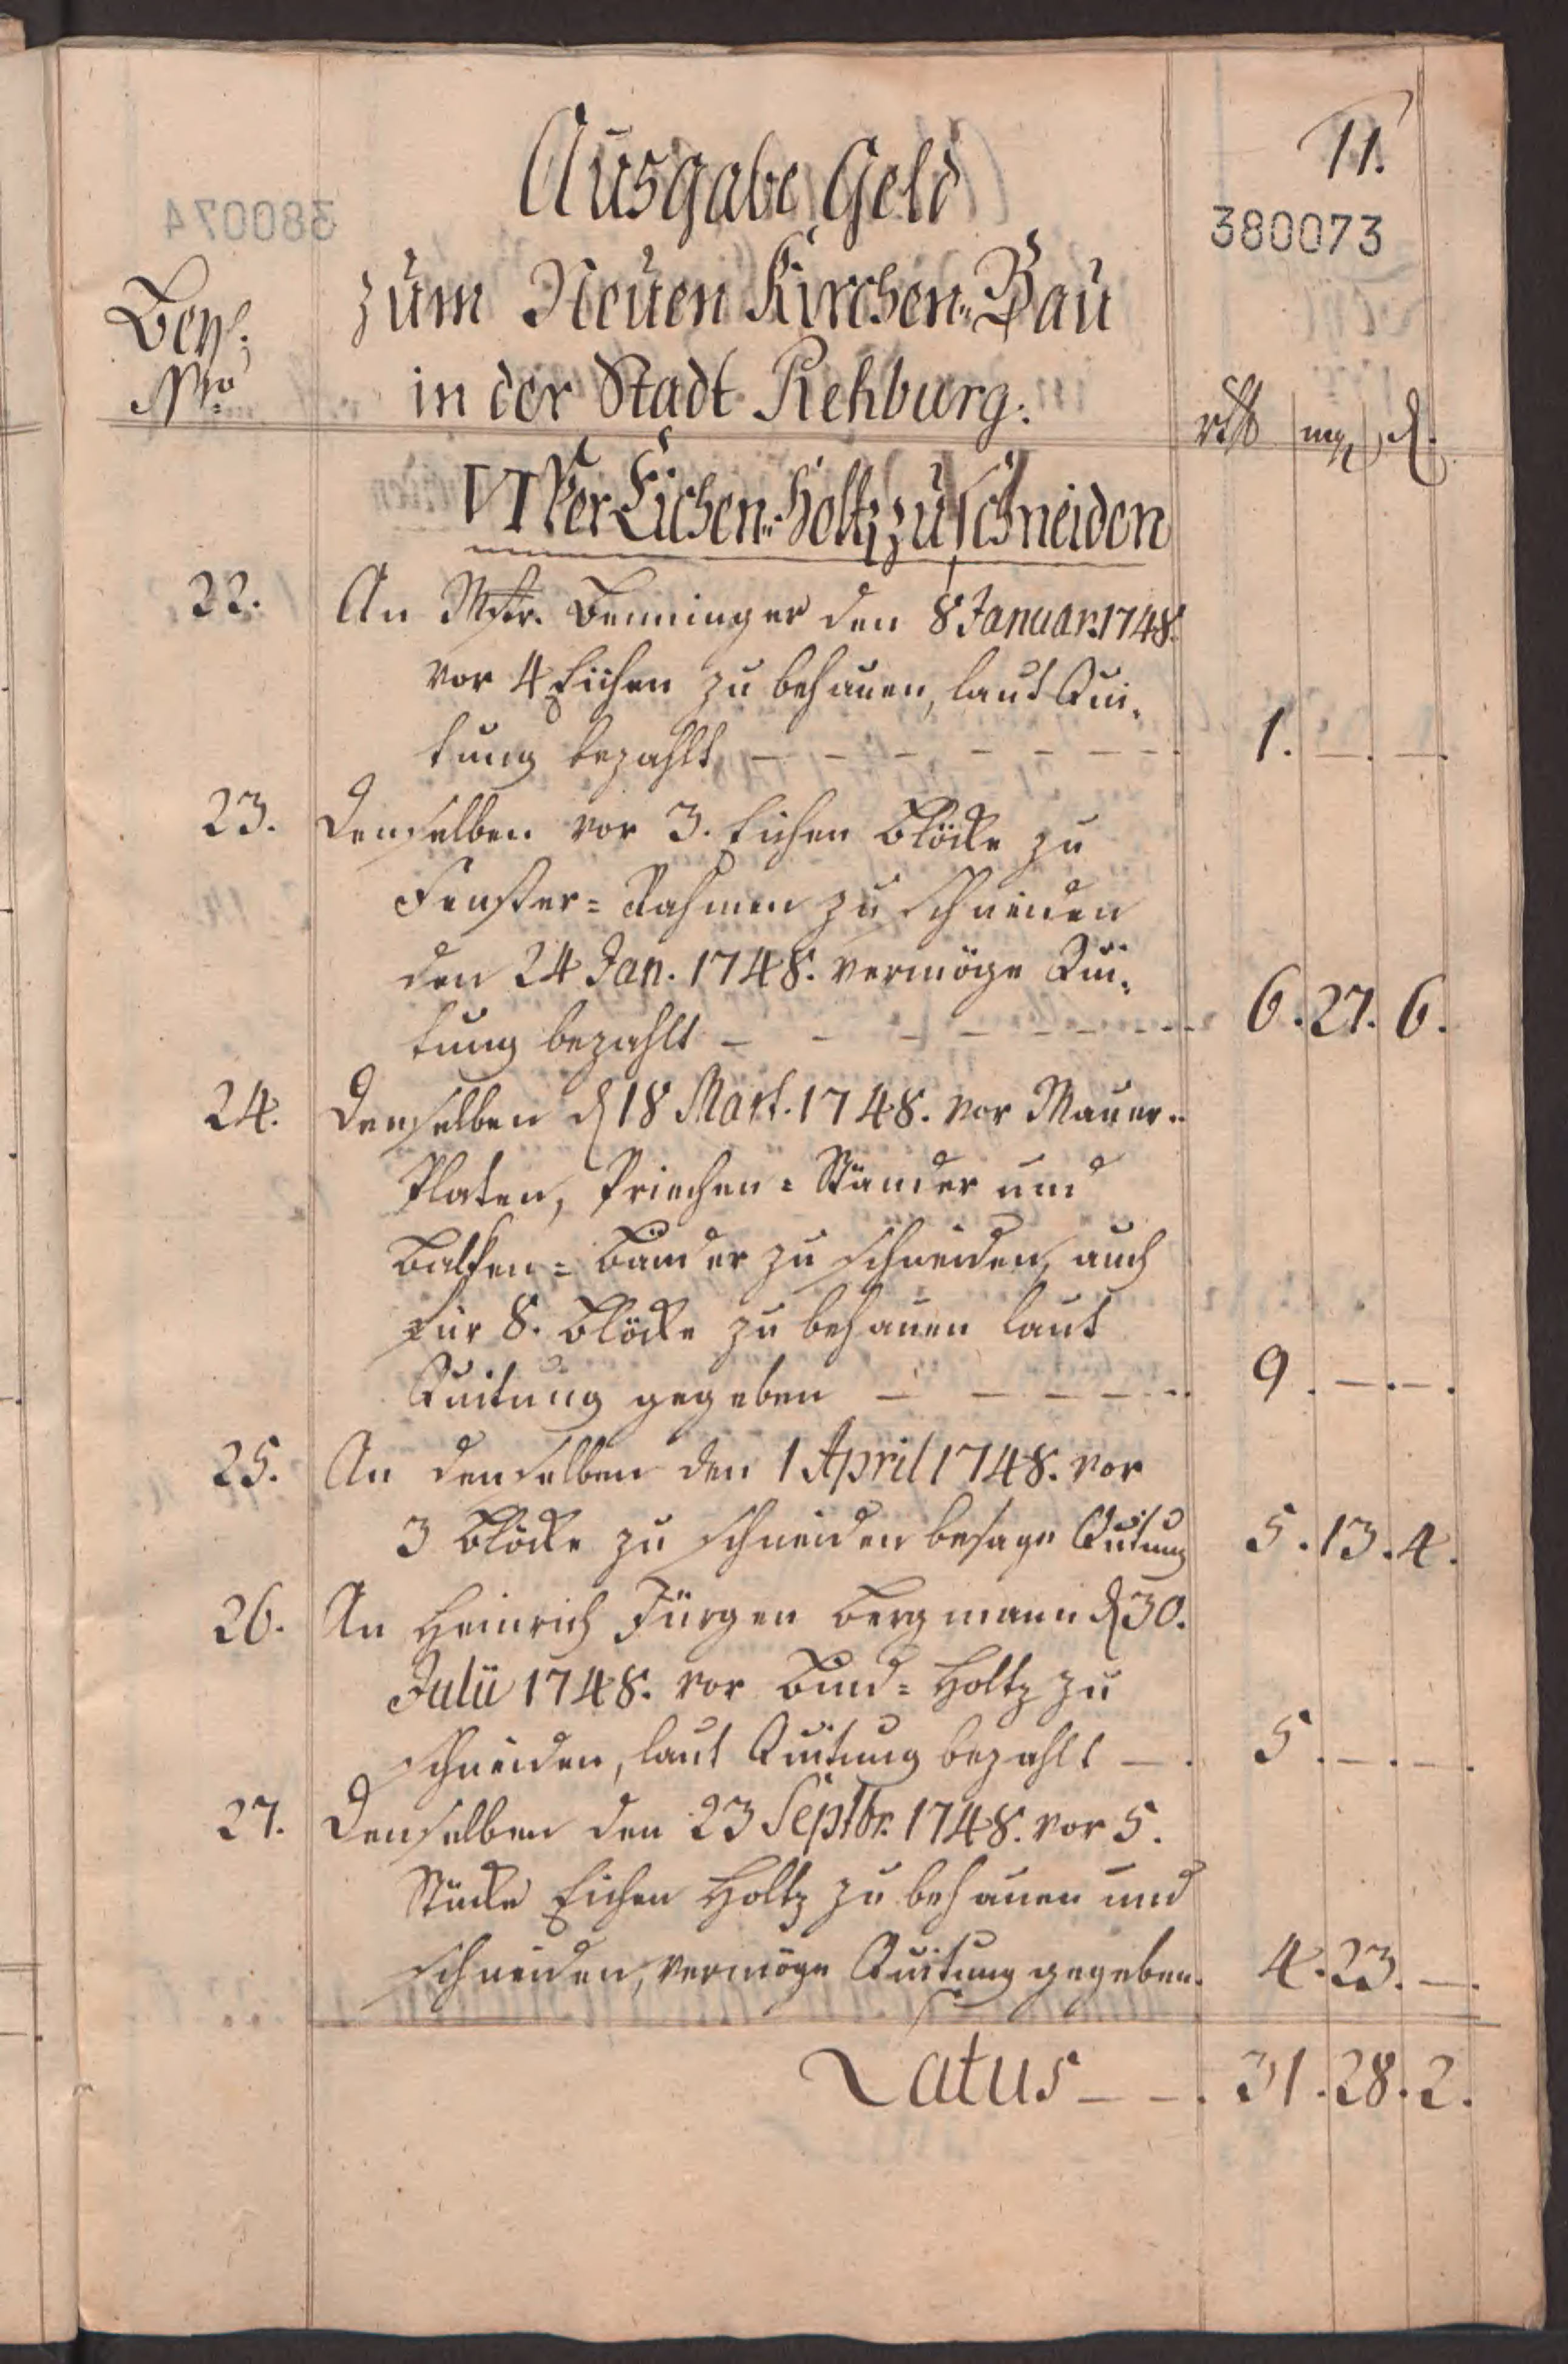 11.
380073
Ausgabe Geld
zum Neuen Kirchen-Bau
in der Stadt Rehburg.
Beyl:
Nro
rthl mg ₰.
VI Vor Eichen-Holtz zu schneiden
22. An Mstr. Benninger den 8 Januar. 1748.
vor 4 Eichen zu behauen, laut Qui-
tung bezahlt - - - - - - - 1. —. —.
23. Demselben vor 3. Eichen Blöcke zu
Fenster-Rahmen zu schneiden
den 24 Jan. 1748. vermöge Qui-
tung bezahlt - - - - - - - 6. 27. 6.
24. Demselben d 18 Mart. 1748. vor Mauer-
Platen, Priechen-Ständer und
Balken-Bänder zu schneiden, auch
für 8. Blöcke zu behauen laut
Quitung gegeben - - - - - 9. —. —.
25. An denselben den 1 April 1748. vor
3 Blöcke zu schneiden besage Quitung 5. 13. 4.
26. An Heinrich Jürgen Bergmann d 30.
Julii 1748. vor Bund-Holtz zu
schneiden, laut Quitung bezahlt —. 5. —. —.
27. Denselben den 23 Septbr. 1748. vor 5.
Stücke Eichen Holtz zu behauen und
schneiden, vermöge Quitung gegeben. 4. 23. —.
Latus - -. 31. 28. 2.